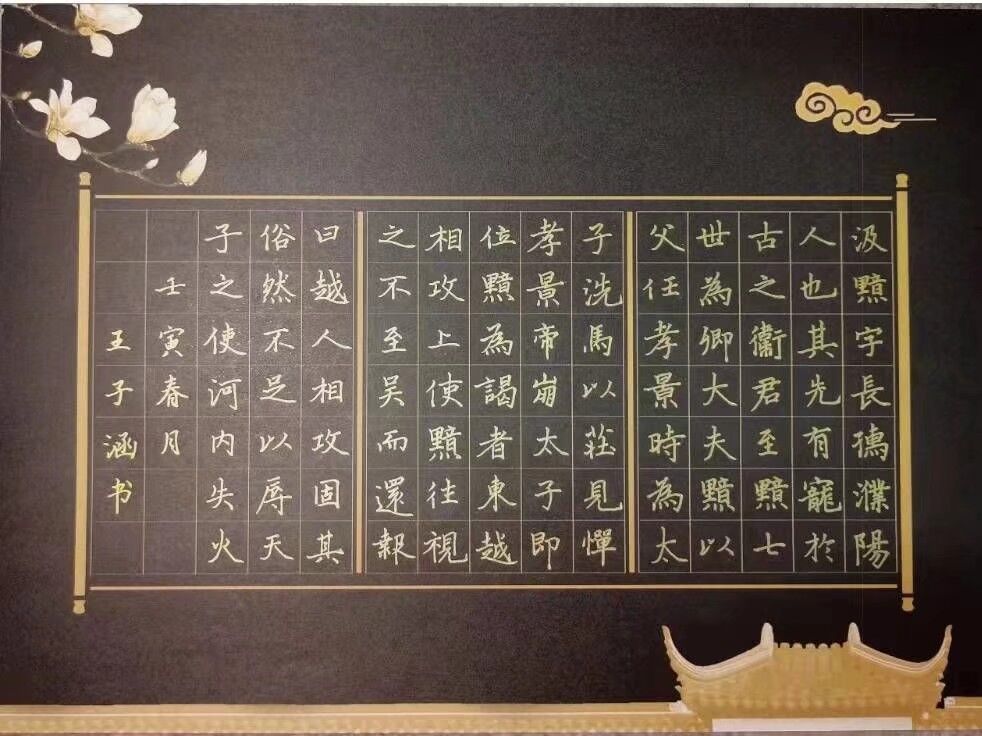 汲黯字長孺濮陽
人也其先有寵於
古之衞君至黯七
世為卿大夫黯以
父任孝景時為太
子洗馬以莊見憚
孝景帝崩太子即
位黯為謁者東越
相攻上使黯往視
之不至吳而還報
曰越人相攻固其
俗然不足以辱天
子之使河内失火
壬寅春月
王子涵书